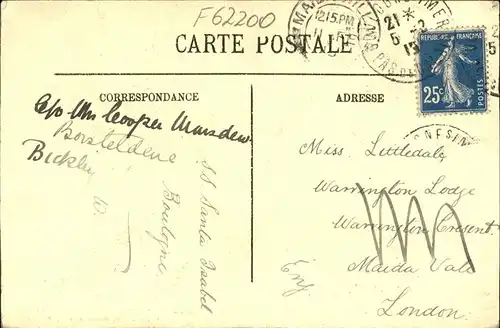 F62200
12.15.PM
CARTE POSTALE
21 *
5 - 2
13
PAS DE
REPUBLIQUE FRANÇAISE
25c
POSTES
CORRESPONDANCE
ADRESSE
c/o Mrs Cooper Marsden
Borsteldene
Bickley
W.
SS Santa Isabel
Boulogne
Miss. Littledale
Warrington Lodge
Warrington Cresent
Maida Vale
London.
Eng